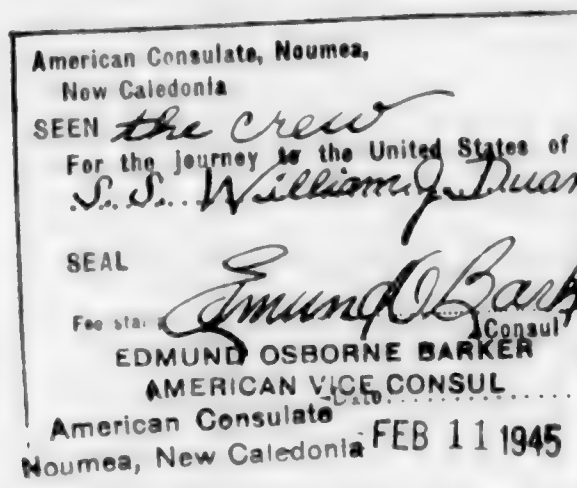 American Consulate, Noumea,
New Caledonia
SEEN the crew
For the journey to the United States of
S. S. William J Duan
SEAL
Fee sta
Edmund O Bark
Consul
EDMUND OSBORNE BARKER
AMERICAN VICE CONSUL
Date
American Consulate
Noumea, New Caledonia FEB 11 1945